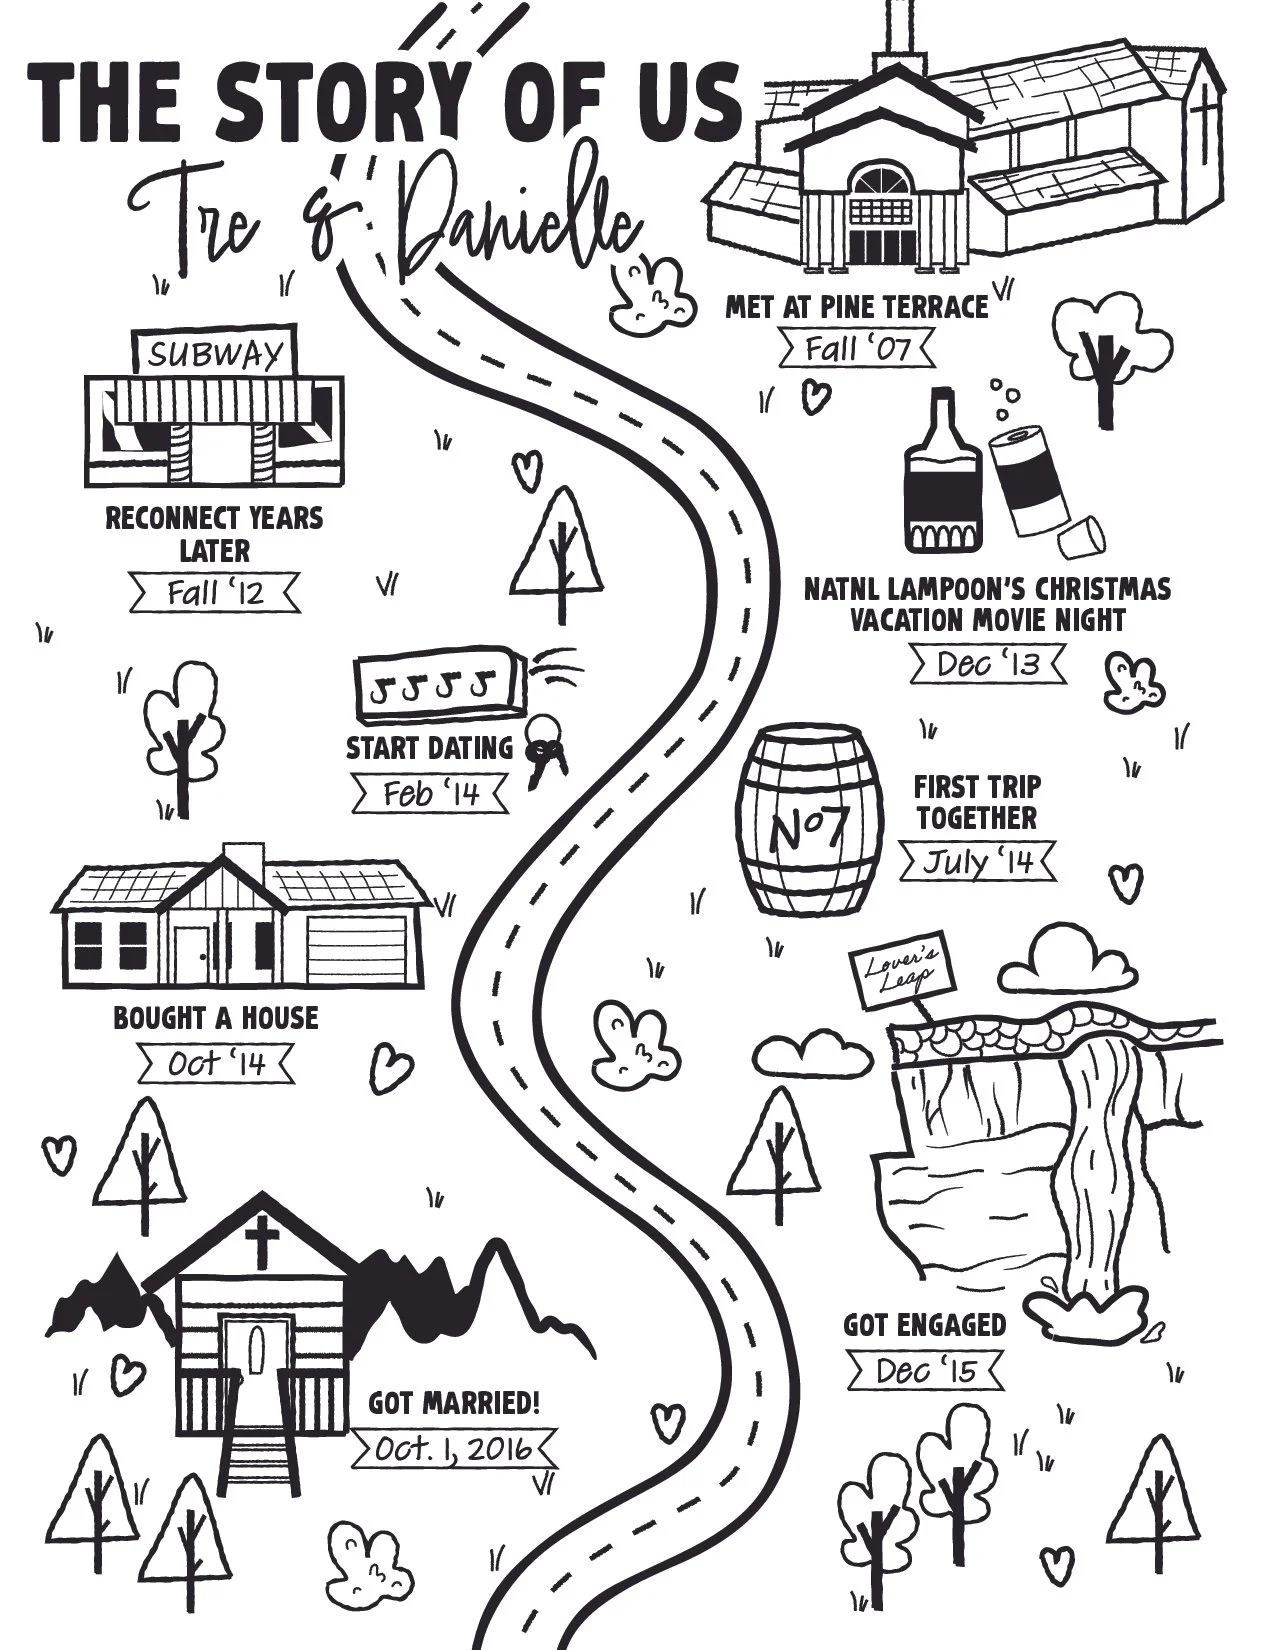 THE STORY OF US
Tre & Danielle
MET AT PINE TERRACE
Fall '07
SUBWAY
RECONNECT YEARS
LATER
Fall '12
NATNL LAMPOON'S CHRISTMAS
VACATION MOVIE NIGHT
Dec '13
START DATING
Feb '14
No7
FIRST TRIP
TOGETHER
July '14
BOUGHT A HOUSE
Oct '14
Lover's
Leap
GOT ENGAGED
Dec '15
GOT MARRIED!
Oct. 1, 2016